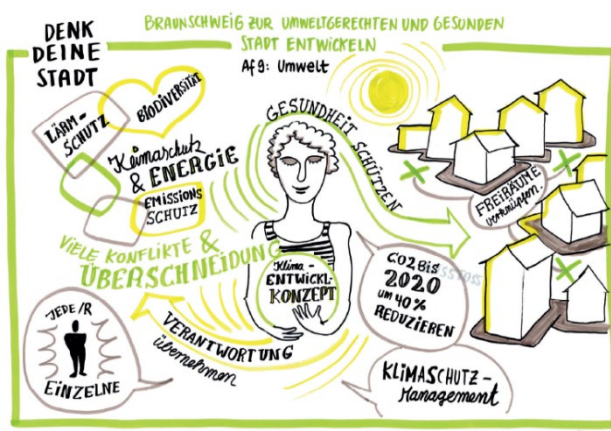 DENK
DEINE
STADT
BRAUNSCHWEIG ZUR UMWELTGERECHTEN UND GESUNDEN
STADT ENTWICKELN
Af9: Umwelt
LÄRM-
SCHUTZ
BIODIVERSITÄT
Klimaschutz
& ENERGIE
EMISSIONS
SCHUTZ
VIELE KONFLIKTE &
ÜBERSCHNEIDUNG
GESUNDHEIT SCHÜTZEN
FREIRÄUME
verknüpfen.
Klima-
ENTWICKL.
KONZEPT
CO2 Bis
2020
um 40%
REDUZIEREN
JEDE/R
EINZELNE
VERANTWORTUNG
übernehmen
KLIMASCHUTZ-
Management